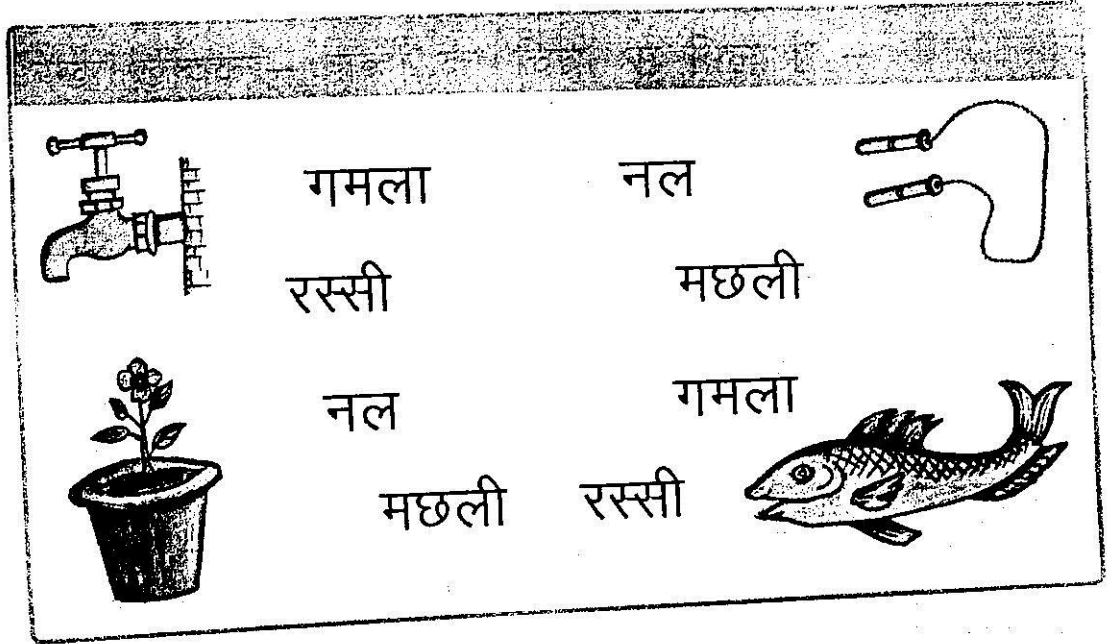 गमला नल
रस्सी मछली
नल गमला
मछली रस्सी